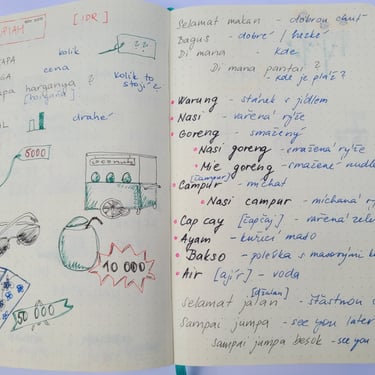 [IDR]
kolik
cena
harganya ?
kolik to
stojí ?
[hargaňa]
drahé
5000
coconut
10 000
50 000
Selamat makan - dobrou chuť
Bagus - dobré / hezké
Di mana - kde
Di mana pantai ?
- kde je pláž ?
Warung - stánek s jídlem
Nasi - vařená rýže
Goreng - smažený
Nasi goreng - smažená rýže
Mie goreng - smažené nudle
[čampur]
Campur - míchat
Nasi campur - míchaná
Cap cay [čapčaj] - vařená
Ayam - kuřecí maso
Bakso - polévka s masovými
Air [ajír] - voda
[džalan]
Selamat jalan - šťastnou
Sampai jumpa - see you later
Sampai jumpa besok - see you